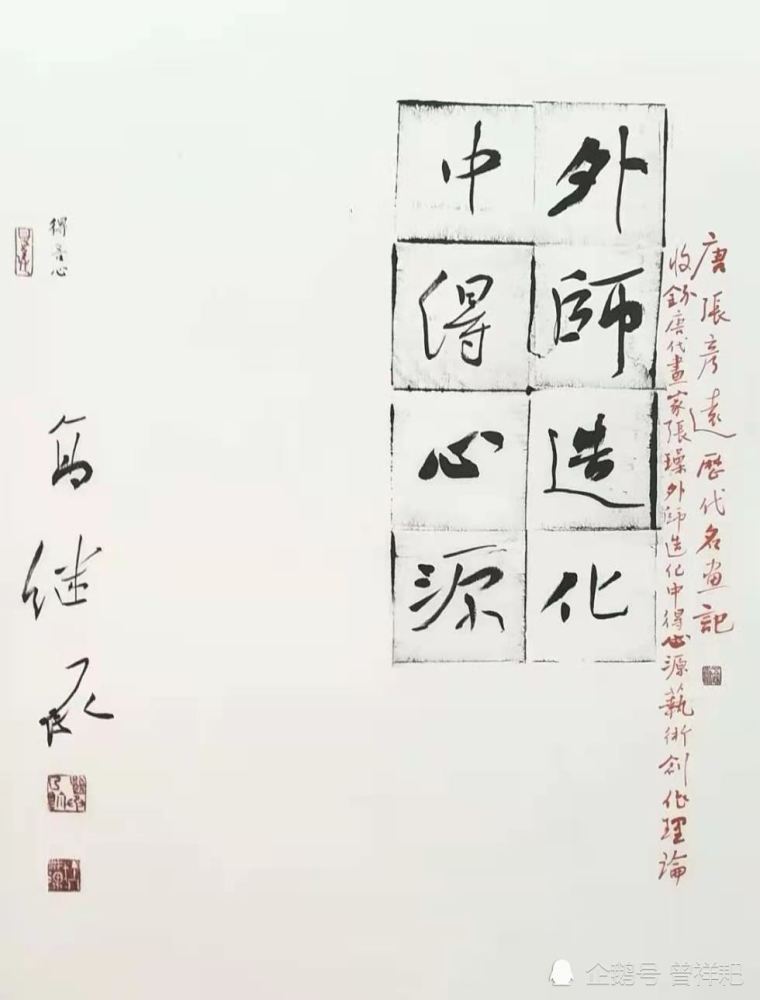 唐張彦遠歷代名畫記
收錄唐代畫家張璪外師造化中得心源藝術創作理論
外師造化
中得心源
得心
继
企鹅号 普祥耙